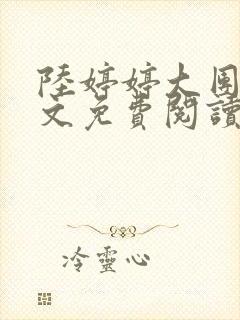 陸婷婷大圍
文免費閱讀
冷靈心